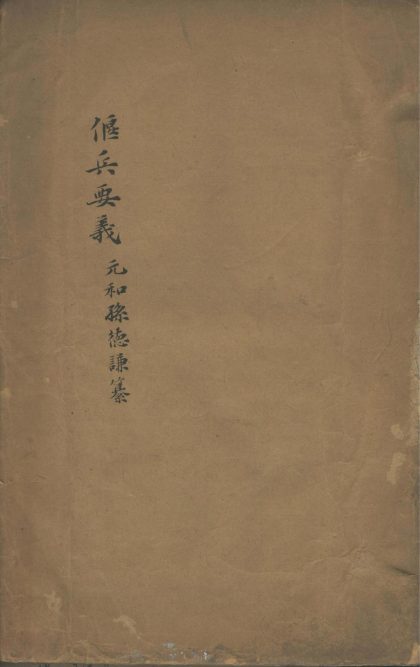 偃兵要義 元和孫德謙纂